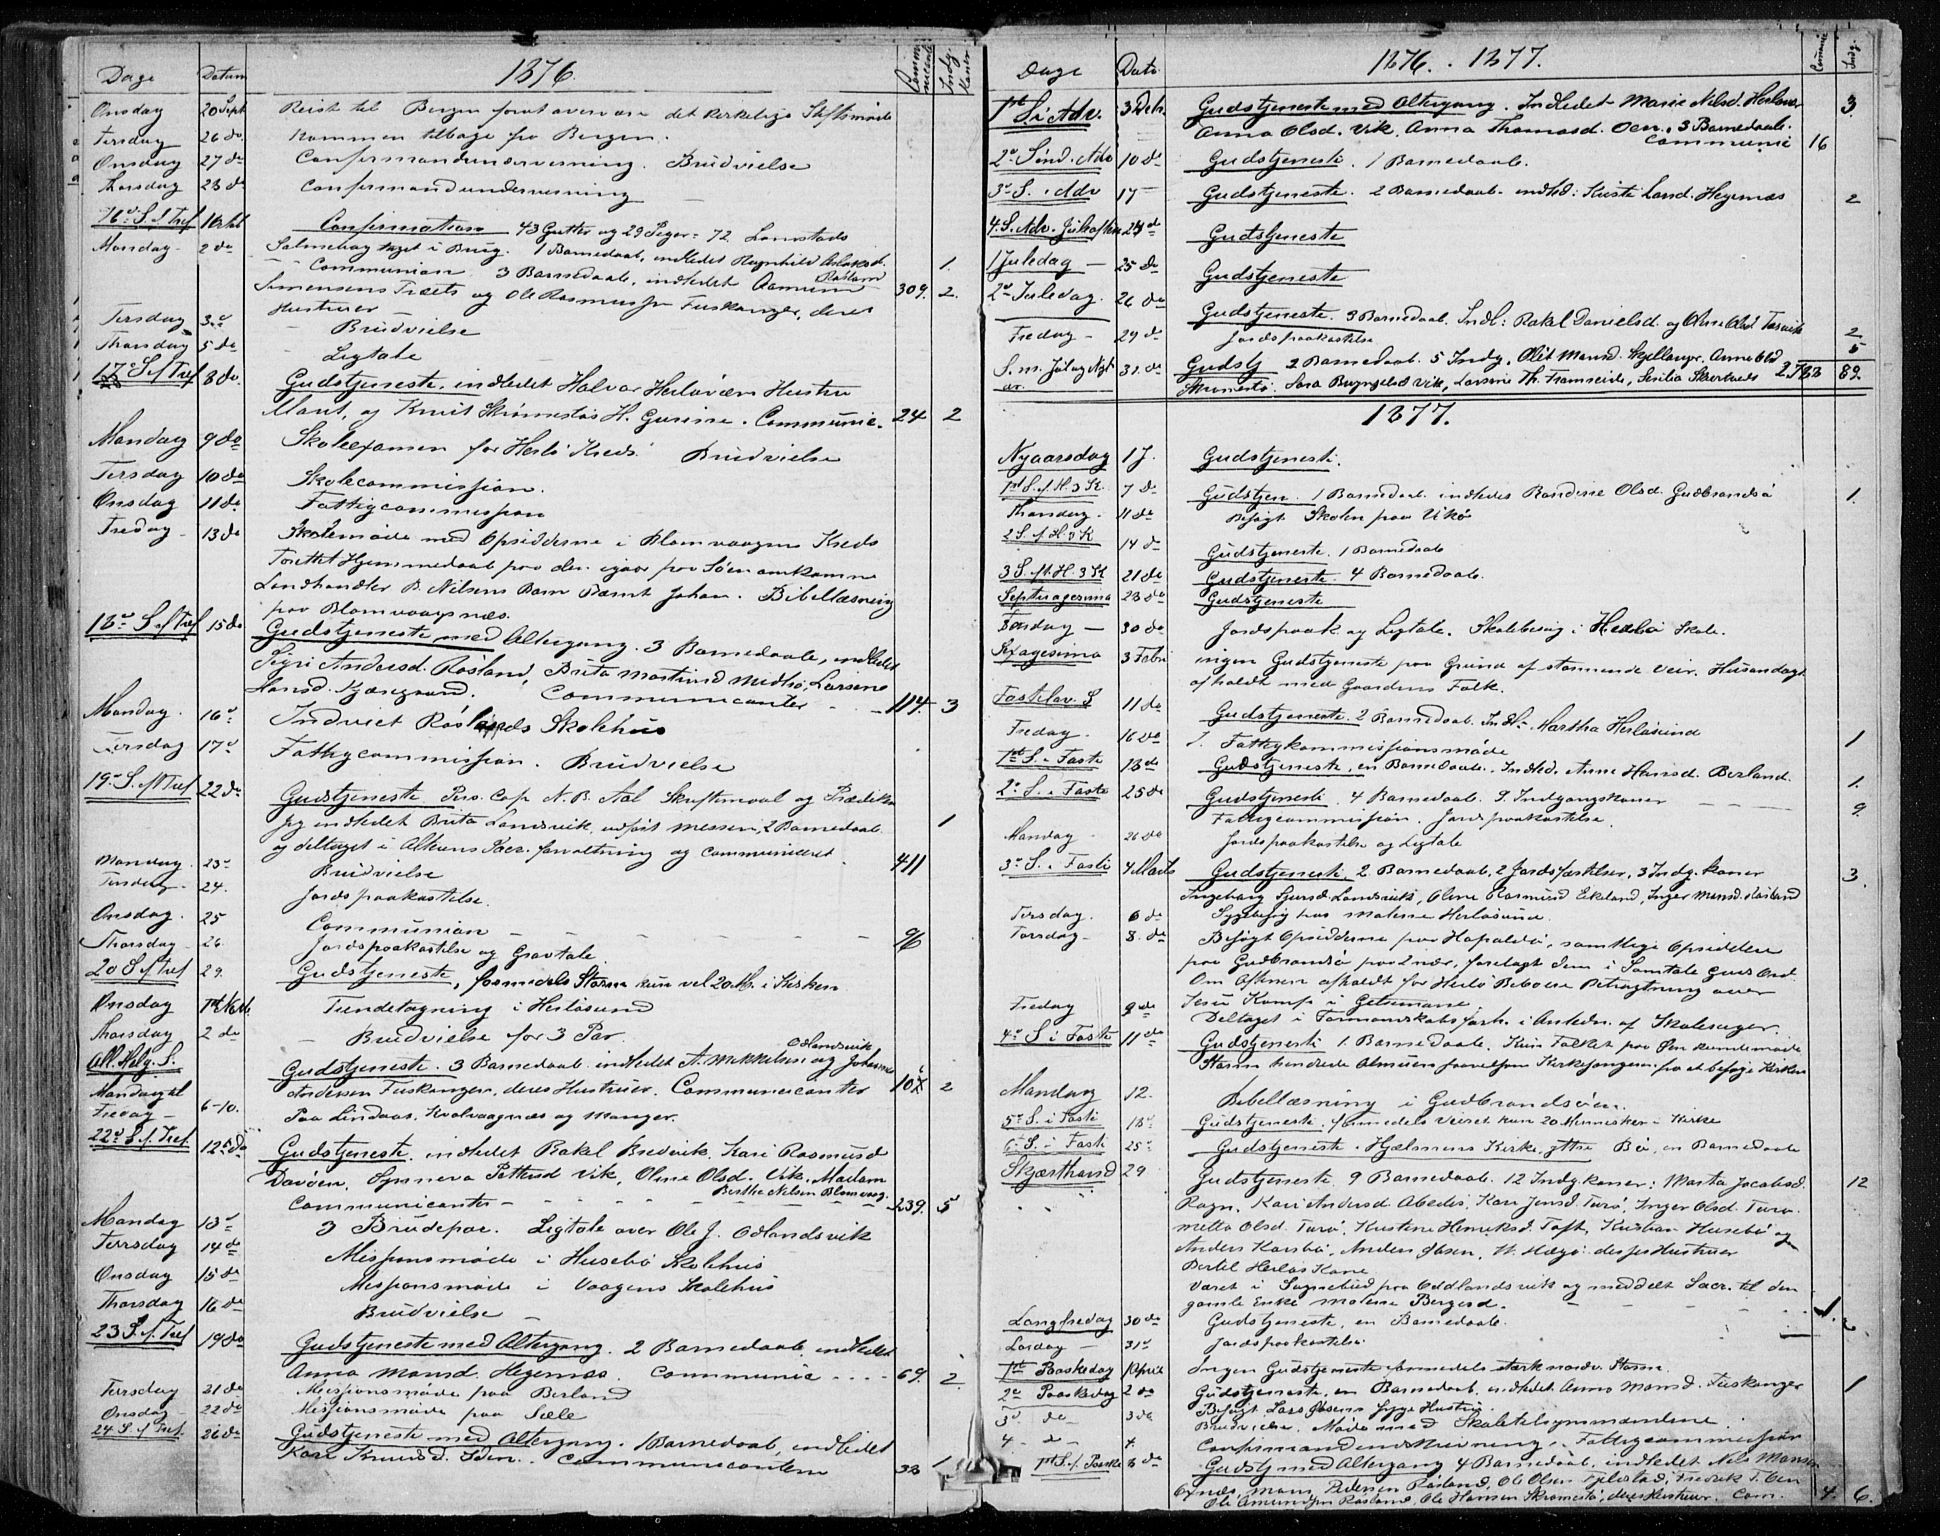 Dage Datum 1876. Communicant Indg. Koner
Onsdag 20 Sept Reist til Bergen forat overvære det kirkelige Stiftsmøde
Tirsdag 26 do. Kommen tilbage fra Bergen.
Onsdag 27 do Confirmandundervisning. Brudvielse
Thorsdag 28 do Confirmandundervisning
16de S. f. Tref 1 Octbr Confirmation 43 Gutter og 29 Piger = 72. Landstads
Mandag 2 do Salmebog taget i Brug. 1 Barnedaab, indledet Ragnhild 1.
Communion. 3 Barnedaab, indledet 309. 2.
Simensens Træets og Ole Rasmussen Fuskanger, deres
Hustruer
Tirsdag 3die Brudvielse
Thorsdag 5 do Ligtale
17de S. f. Tref 8 do. Gudstjeneste, indledet Halvor Herløværs Hustru
Marit, og Knut Skrømestøs H. Gurine. Communic. 24 2
Mandag 9 do Skoleexamen for Herlø Kreds. Brudvielse
Tirsdag 10 do Skolecommission.
Onsdag 11 do Fattigcommission
Fredag 13 do Skolemøde med Opsidderne i Blomvaagens Kreds
Forettet Hjemmedaab paa den igaar fra Søen ankomne
Landhandler B. Nilsens Barn Bernt Johan. Bibellæsning
paa Blomvaagnæs.
18de S. f. Tref 15 do Gudstjeneste med Altergang. 3 Barnedaab, indledet
Sigri Andersd. Røsland, Brita Mortind Midtø, Larsine
Hansd. Kjæregaard. Communicanter 114. 3
Mandag. 16de Indviet Røslands Skolehus
Tirsdag 17de Fattigcommission. Brudvielse
19de S. f. Tref 22 do Gudstjeneste. Pers. Cap. N. B. Aal Skriftemaal og Prædiken
Jeg indledet Brita Landsvik, udført Messen, 2 Barnedaab. 1
og deltaget i Alterens Sacr. forvaltning og communiceret. 411
Mandag. 23de Brudvielse
Tirsdag. 24. Jordspaakastelse.
Onsdag. 25 Communion 96
Thorsdag 26. Jordspaakastelse og Gravtale.
20 S. f. Tref 29. Gudstjeneste, formedels Storm kun vel 20 M. i Kirken
Onsdag 1ste Nvbr. Tiendetagning i Herløsund
Thorsdag 2 do Brudvielse for 3 Par.
All. Helg. S. Gudstjeneste. 3 Barnedaab. indledet A. Mikkelsen Odlandsvik og Johanne
Andersen Fuskanger, deres Hustruer. Communicanter 2
Mandag til
Fredag 6-10. Paa Lindaas. Kvalvaagnæs og Manger.
22de S. f. Tref. 12 do Gudstjeneste. indledet Rakel Bredvik. Kari Rasmusd
Davøen, Synneva Pettersd Vik, Oline Olsd. Vik. Madam
Berthe Nilsen Blomvaag.
Communicanter 239. 5
Mandag 13de 3 Brudepar. Ligtale over Ole J. Odlandsvik
Tirsdag 14 do Missionsmøde i Husebø Skolehus
Onsdag 15 do Missionsmøde i Vaagens Skolehus
Thorsdag 16 do Brudvielse
23 S. f. Tref 19 do Gudstjeneste med Altergang. 2 Barnedaab indledet
Anna Monsd. Hegernæs. Communic 69. 2.
Tirsdag 21 do Missionsmøde paa Berland
Onsdag 22 do Missionsmøde paa Sæle
24 S. f. Tref. 26 do Gudstjeneste med Altergang. 1 Barnedaab, indledet
Kari Knudsd. Communicantern 38 1
Dage Dato. 1876. 1877. Commun Indg.
1ste S. i Adv. 3 Dcbr. Gudstjeneste med Altergang. Indledet Marie Nilsd. Herløvær 3.
Anna Olsd. Vik, Anna Thomasd. Oen. 3 Barnedaab.
Communic 16
2de Sønd. Adv 10 do Gudstjeneste. 1 Barnedaab.
3die S. i Adv 17 Gudstjeneste. 2 Barnedaab. indled: Kirsti Larsd. Hegernæs 2
4. S. Adv. Juleaften 24 do Gudstjeneste
1 Juledag 25 do Gudstjeneste
2de Juledag. 26 do Gudstjeneste. 3 Barnedaab. Indl: Rakel Danielsd. og Oline Olsd Tarvik 2
Fredag 29 do Jordspaakastelse
S. m. Jul og Nytaar 31. do Gudstj 2 Barnedaab. 5 Indg. Olit Monsd. Skjellanger, Anne Old 5
Skrømestø, Sara Brynjelsd Vik, Larsine Th. Framreide, Sesilia 2,788 89.
1877.
Nyaarsdag 1 J. Gudstjeneste.
1ste S. f. H. 3 K. 7 do Gudstjen. 1 Barnedaab indledet Randine Olsd. Gudbrandsø 1.
Thorsdag. 11 do Besøgt Skolen paa Vikø
2 S. f H. 3 K 14 do Gudstjeneste. 1 Barnedaab
3 S. ft. H. 3 K 21 do Gudstjeneste. 4 Barnedaab.
Septuagesima 28 do Gudstjeneste
Tirsdag 30 do Jordspaak og Ligtale. Skolebesøg i Herlø Skole.
Sexagesima 3 Febr ingen Gudstjeneste paa Grund af stormende Veir. Husandagt
afholdt med Gaardens Folk.
Fastelav. S 11 do Gudstjeneste. 2 Barnedaab. Indl: Martha Herløsund
Fredag. 16 do Fattigkommissionsmøde 1
1ste S. i Faste 18 do Gudstjeneste, en Barnedaab. Indled. Anne Hansd. Berland. 1.
2de S. i Faste 25 do Gudstjeneste. 4 Barnedaab. 9. Indgangskoner 9.
Fattigcommission. Jordspaakastelse.
Mandag 26 do Jordspaakastelse og Ligtale
3die S. i Faste 4 Marts Gudstjeneste, 2 Barnedaab, 2 Jordsfæstelser, 3 Indg. koner 3.
Ingeborg Sjursd Landsvik, Oline Rasmusd Ekeland, Inger Monsd. Røsland
Tirsdag. 6 do Sygebesøg hos Malene Herløsund.
Torsdag 8. do Besøgt Opsidderne paa Hopalsø, samtlige Opsiddere
paa Gudbrandsø paa 2 nær, forelagt dem i Samtale Guds Ord.
Om Aftenen afholdt for Herlø Beboere Betragtning over
Jesu Kamp i Getsemane.
Fredag 9 do Deltaget i Formandskabsforh. i Anledn. af Skolesager.
4de S i Faste 11 do Gudstjeneste 1. Barnedaab. Kun Folket paa Øen kunde møde
Storm hindrede Almuen fra at besøge Kirken
Mandag 12. Bibellæsning i Gudbrandsøen.
5te S. i Faste 18de Gudstjeneste. formedels Veiret kun 20 Mennesker i Kirke
6te S. i Faste 25de Gudstjeneste. Hjælmens Kirke, yttre Bø, en Barnedaab
Skjærthorsd 29 Gudstjeneste. 9 Barnedaab. 12 Indg. koner: Marta Jacobsd. 12
Ragn. Kari Andersd Abedis, Kari Jensd Turø, Inger Olsd. Turø
Mette Olsd. Turø, Kirstine Henriksd. Toft, Kristian Husebø og
Anders Karsbø, Anders Ibsen, deres Hustruer
Bertil Herløs Kone
Været i Sognebud paa Oddlandsvik og meddelt Sacr. til den
gamle Enke Malene Bergesd. 1.
Langfredag 30 do Gudstjeneste, en Barnedaab.
Lørdag 31te Jordspaakastelse.
1ste Paaskedag 1 April Ingen Gudstjeneste formedels stærk nordv. Storm.
2de Paaskedag 2 do Gudstjeneste, en Barnedaab, indledet Anna Monsd. Fuskanger 1
3die do 3 do Besøgt Lars Ibsens syge Hustru.
Brudvielse. Møde med Skoletilsynsmændene.
4 do 4. Confirmandindskrivning. Fattigcommission
1ste S. f. Paaske 8 do Gudstj med Altergang 4 Barnedaab, indledet Nils Monsen
Oxnes, Mons Pedersen Røsland, Ole Olsen Fjeldstad, Fredrik T. Oen
Ole Amundsen Røsland, Ole Hansen Skrømestø, deres Hustruer. Com. 4. 6.